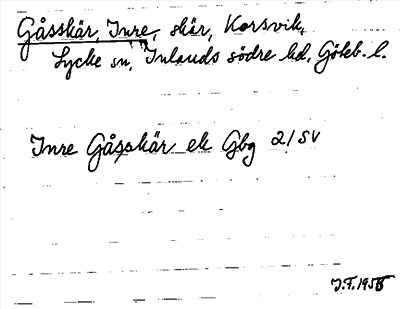 Gåsskär, Inre, skär, Korsvik,
Lycke sn, Inlands södre hd, Göteb. l.
Inre Gåsskär ek Gbg 2/SV
J.F. 1958